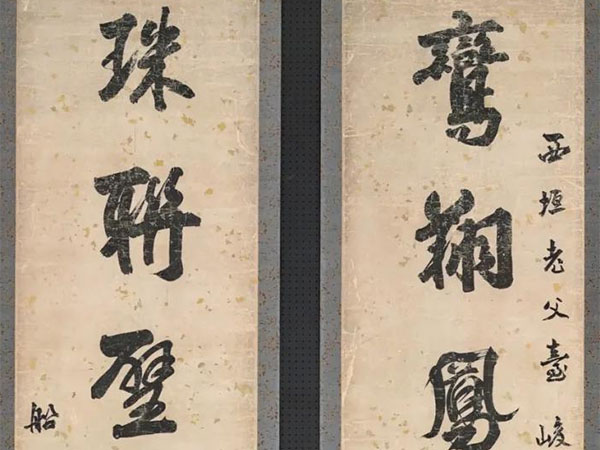 西垣老父臺峻
鸞翔鳳
珠聯璧
船